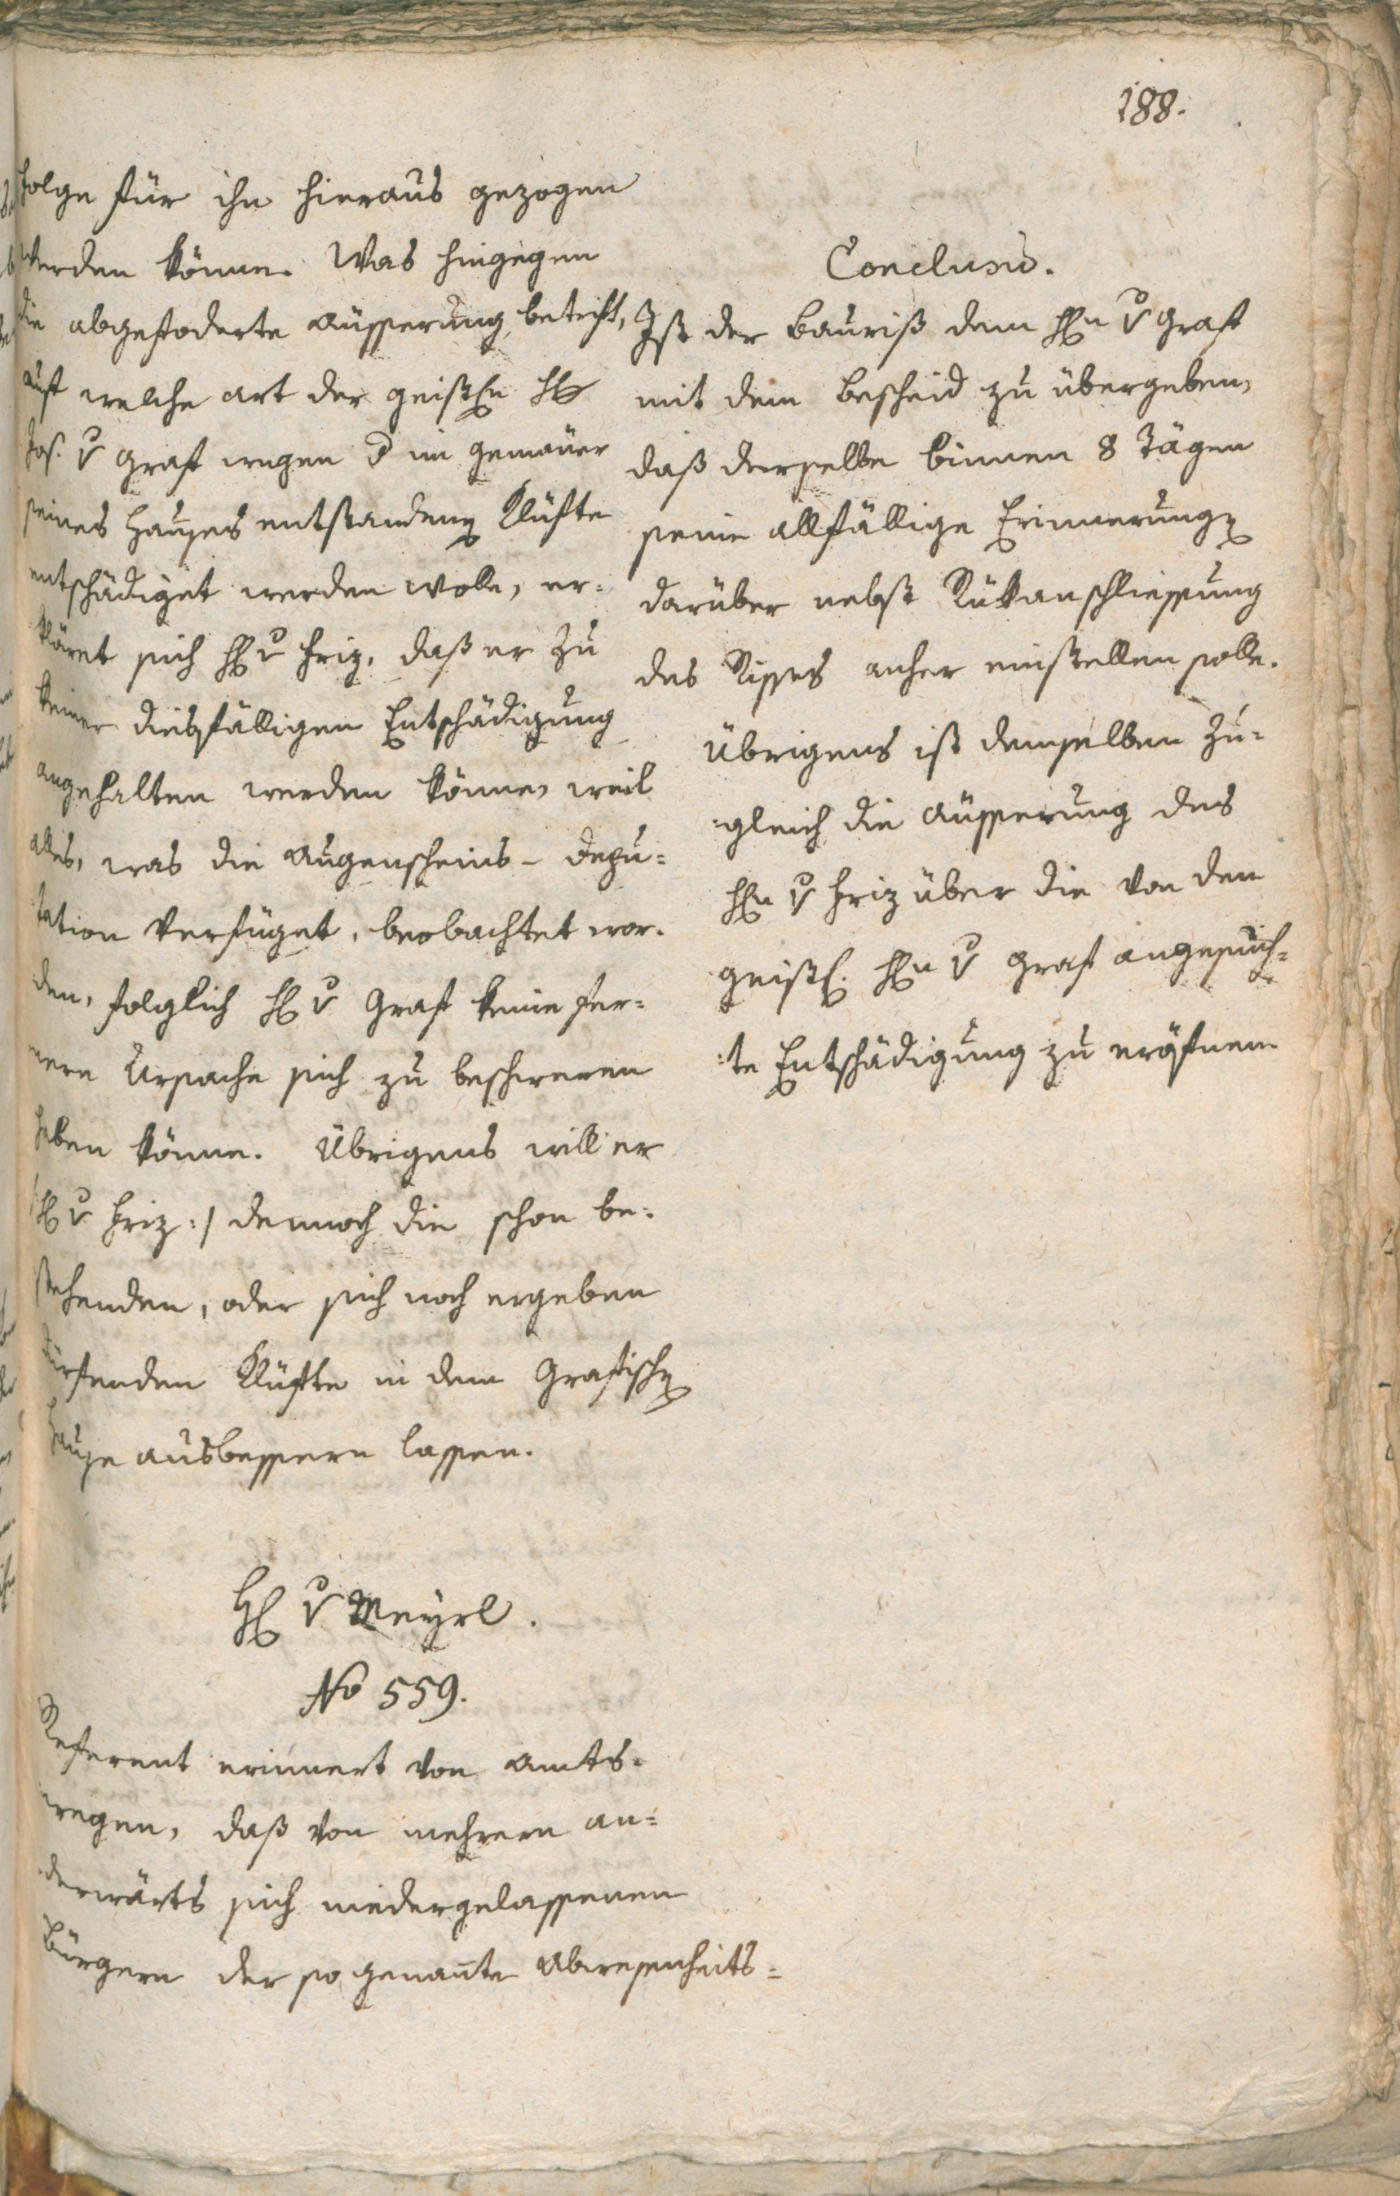 188.
folge für ihn hieraus gezogen
werden könne. Was hingegen
die abgefoderte Äusserung betrift,
auf welche art der geistln H
Jos. v Graf wegen d im gemäuer
seines Hauses entstanden Klüfte
entschädiget werden wolle, er=
kläret sich H v Friz, daß er zu
keiner diesfälligen Entschädigung
angehalten werden könne, weil
alles, was die Augenscheins- depu=
tation verfüget, beobachtet wor=
den, folglich H v Graf keine fer=
nere Ursache sich zu beschweren
haben könne. Übrigens will er
/: H v Friz :/ dennoch die schon be=
stehenden, oder sich noch ergeben
dürfenden Klüfte in dem Grafisch
Hause ausbessern lassen.
H v Meyrl.
No 559.
Referent erinnert von Amts=
wegen, daß von mehrern an=
derwärts sich niedergelassenen
Bürgern der so genante Abwesenheits=
Conclusio.
Ist der Bauriß dem Hn v Graf
mit dem Bescheid zu übergeben,
daß derselbe binnen 8 Tägen
seine allfällige Erinnerung
darüber nebst Rükanschliessung
des Risses anher einstellen solle.
Übrigens ist demselben zu=
gleich die Äusserung des
Hn v Friz über die von dem
geistl. Hn v Graf angesuch=
te Entschädigung zu eröfnen.